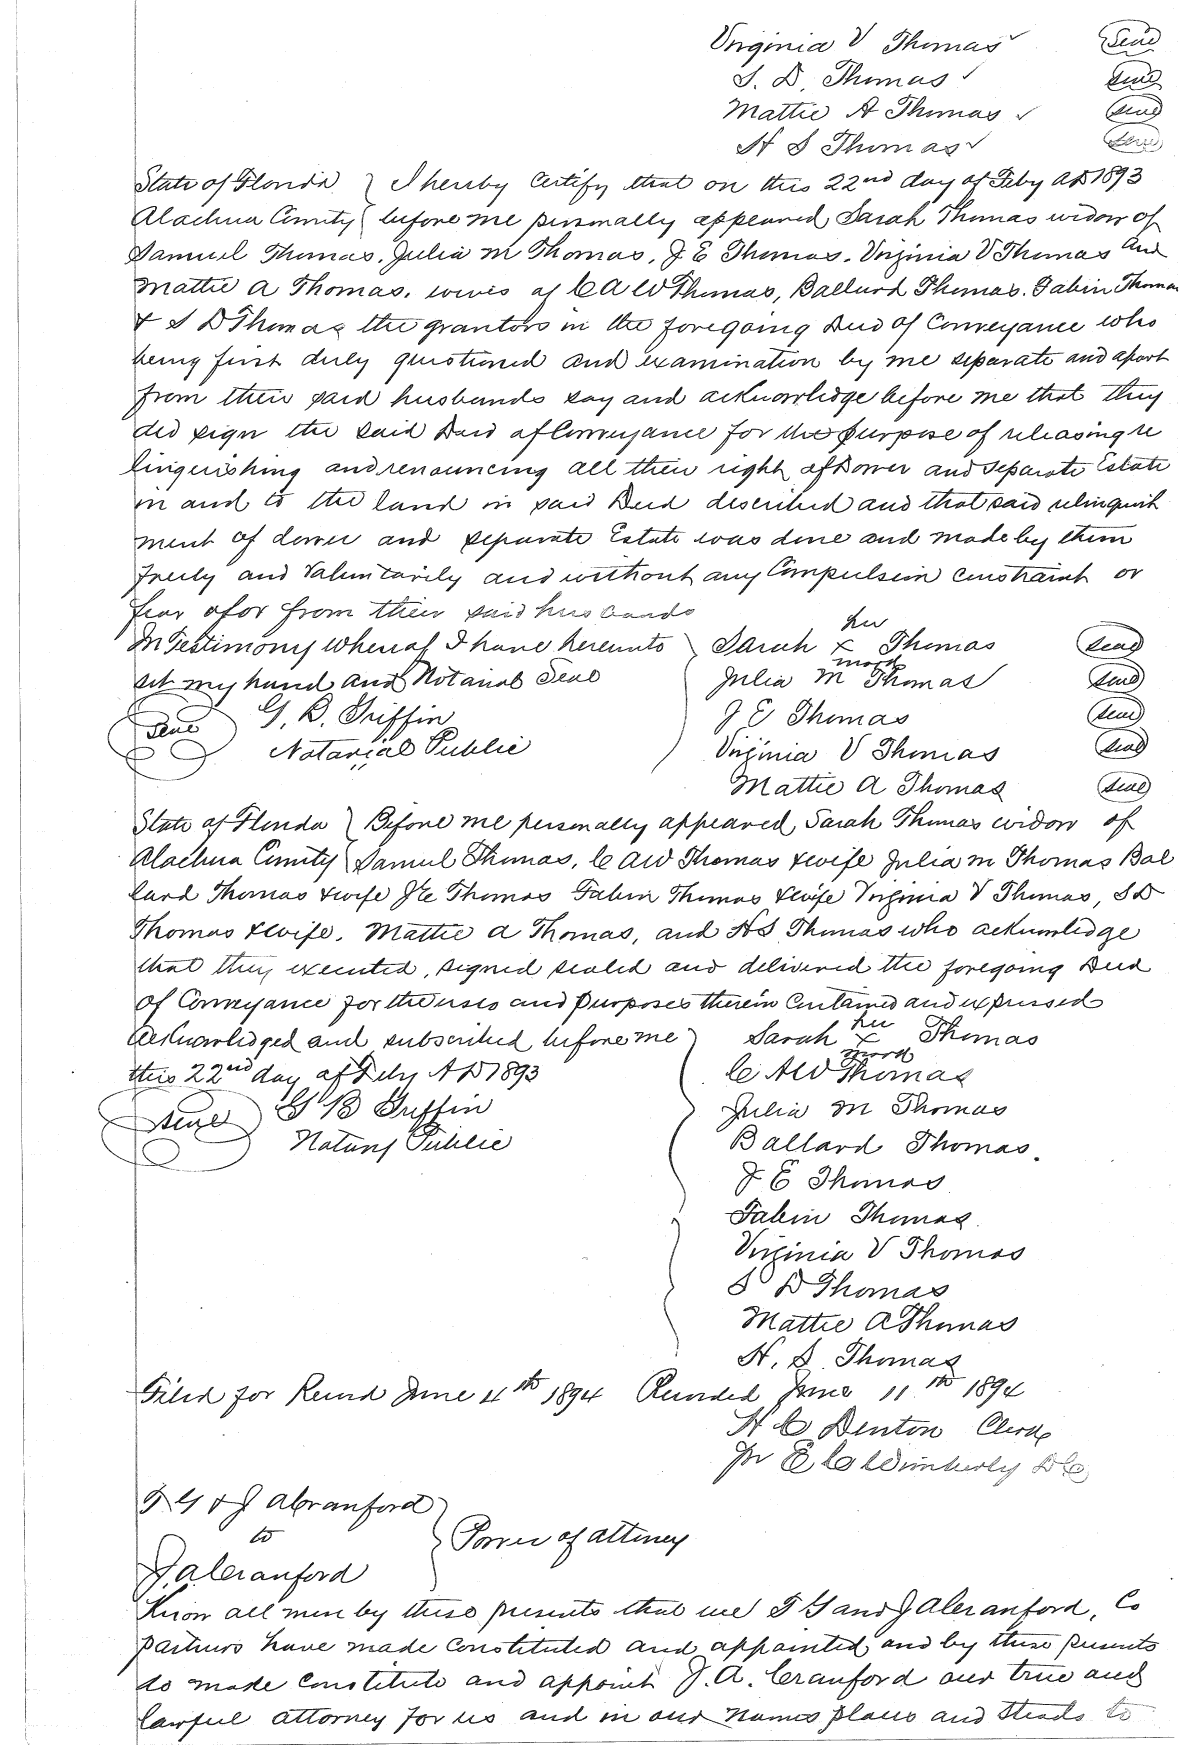 Virginia V Thomas Seal
S. D. Thomas Seal
Mattie A Thomas Seal
H S Thomas Seal
State of Florida } I hereby Certify that on this 22nd day of Feby AD 1893
Alachua County { before me personally appeared Sarah Thomas widow of
Samuel Thomas, Julia M Thomas, J E Thomas, Virginia V Thomas and
Mattie A Thomas, wives of C A W Thomas, Ballard Thomas, Fabin Thomas
& S D Thomas the grantors in the foregoing Deed of Conveyance who
being first duly questioned and examination by me separate and apart
from their said husbands say and acknowledge before me that they
did sign the said Deed of Conveyance for the purpose of releasing re
linquishing and renouncing all their right of Dower and separate Estate
in and to the land in said Deed described and that said relinquish
ment of dower and separate Estate was done and made by them
freely and Voluntarily and without any Compulsion constraint or
fear of or from their said husbands
In Testimony Whereof I have hereunto } Sarah her x mark Thomas Seal
set my hand and Notarial Seal Julia M Thomas Seal
Seal G. B. Griffin J E Thomas Seal
Notarial Public Virginia V Thomas Seal
Mattie A Thomas Seal
State of Florida } Before me personally appeared, Sarah Thomas widow of
Alachua County { Samuel Thomas, C A W Thomas & wife Julia M Thomas Bal
lard Thomas & wife J E Thomas Fabin Thomas & wife Virginia V Thomas, S D
Thomas & wife, Mattie A Thomas, and H S Thomas who acknowledge
that they executed, signed sealed and delivered the foregoing Deed
of Conveyance for the uses and purposes therein Contained and expressed
Acknowledged and subscribed before me } Sarah her x mark Thomas
this 22nd day of Feby A D 1893 C A W Thomas
Seal G B Griffin Julia M Thomas
Notary Public Ballard Thomas.
J E Thomas
Fabin Thomas
Virginia V Thomas
S D Thomas
Mattie A Thomas
H. S. Thomas
Filed for Record June 4th 1894 Recorded June 11th 1894
H C Denton Clerk
Pr E C Wimberly DC
T G & J A Cranford
to } Power of Attorney
J. A. Cranford
Know all men by these presents that we T G and J A Cranford, Co
partners have made constituted and appointed and by these presents
do made constitute and appoint J. A. Cranford our true and
lawful attorney for us and in our names place and steads to